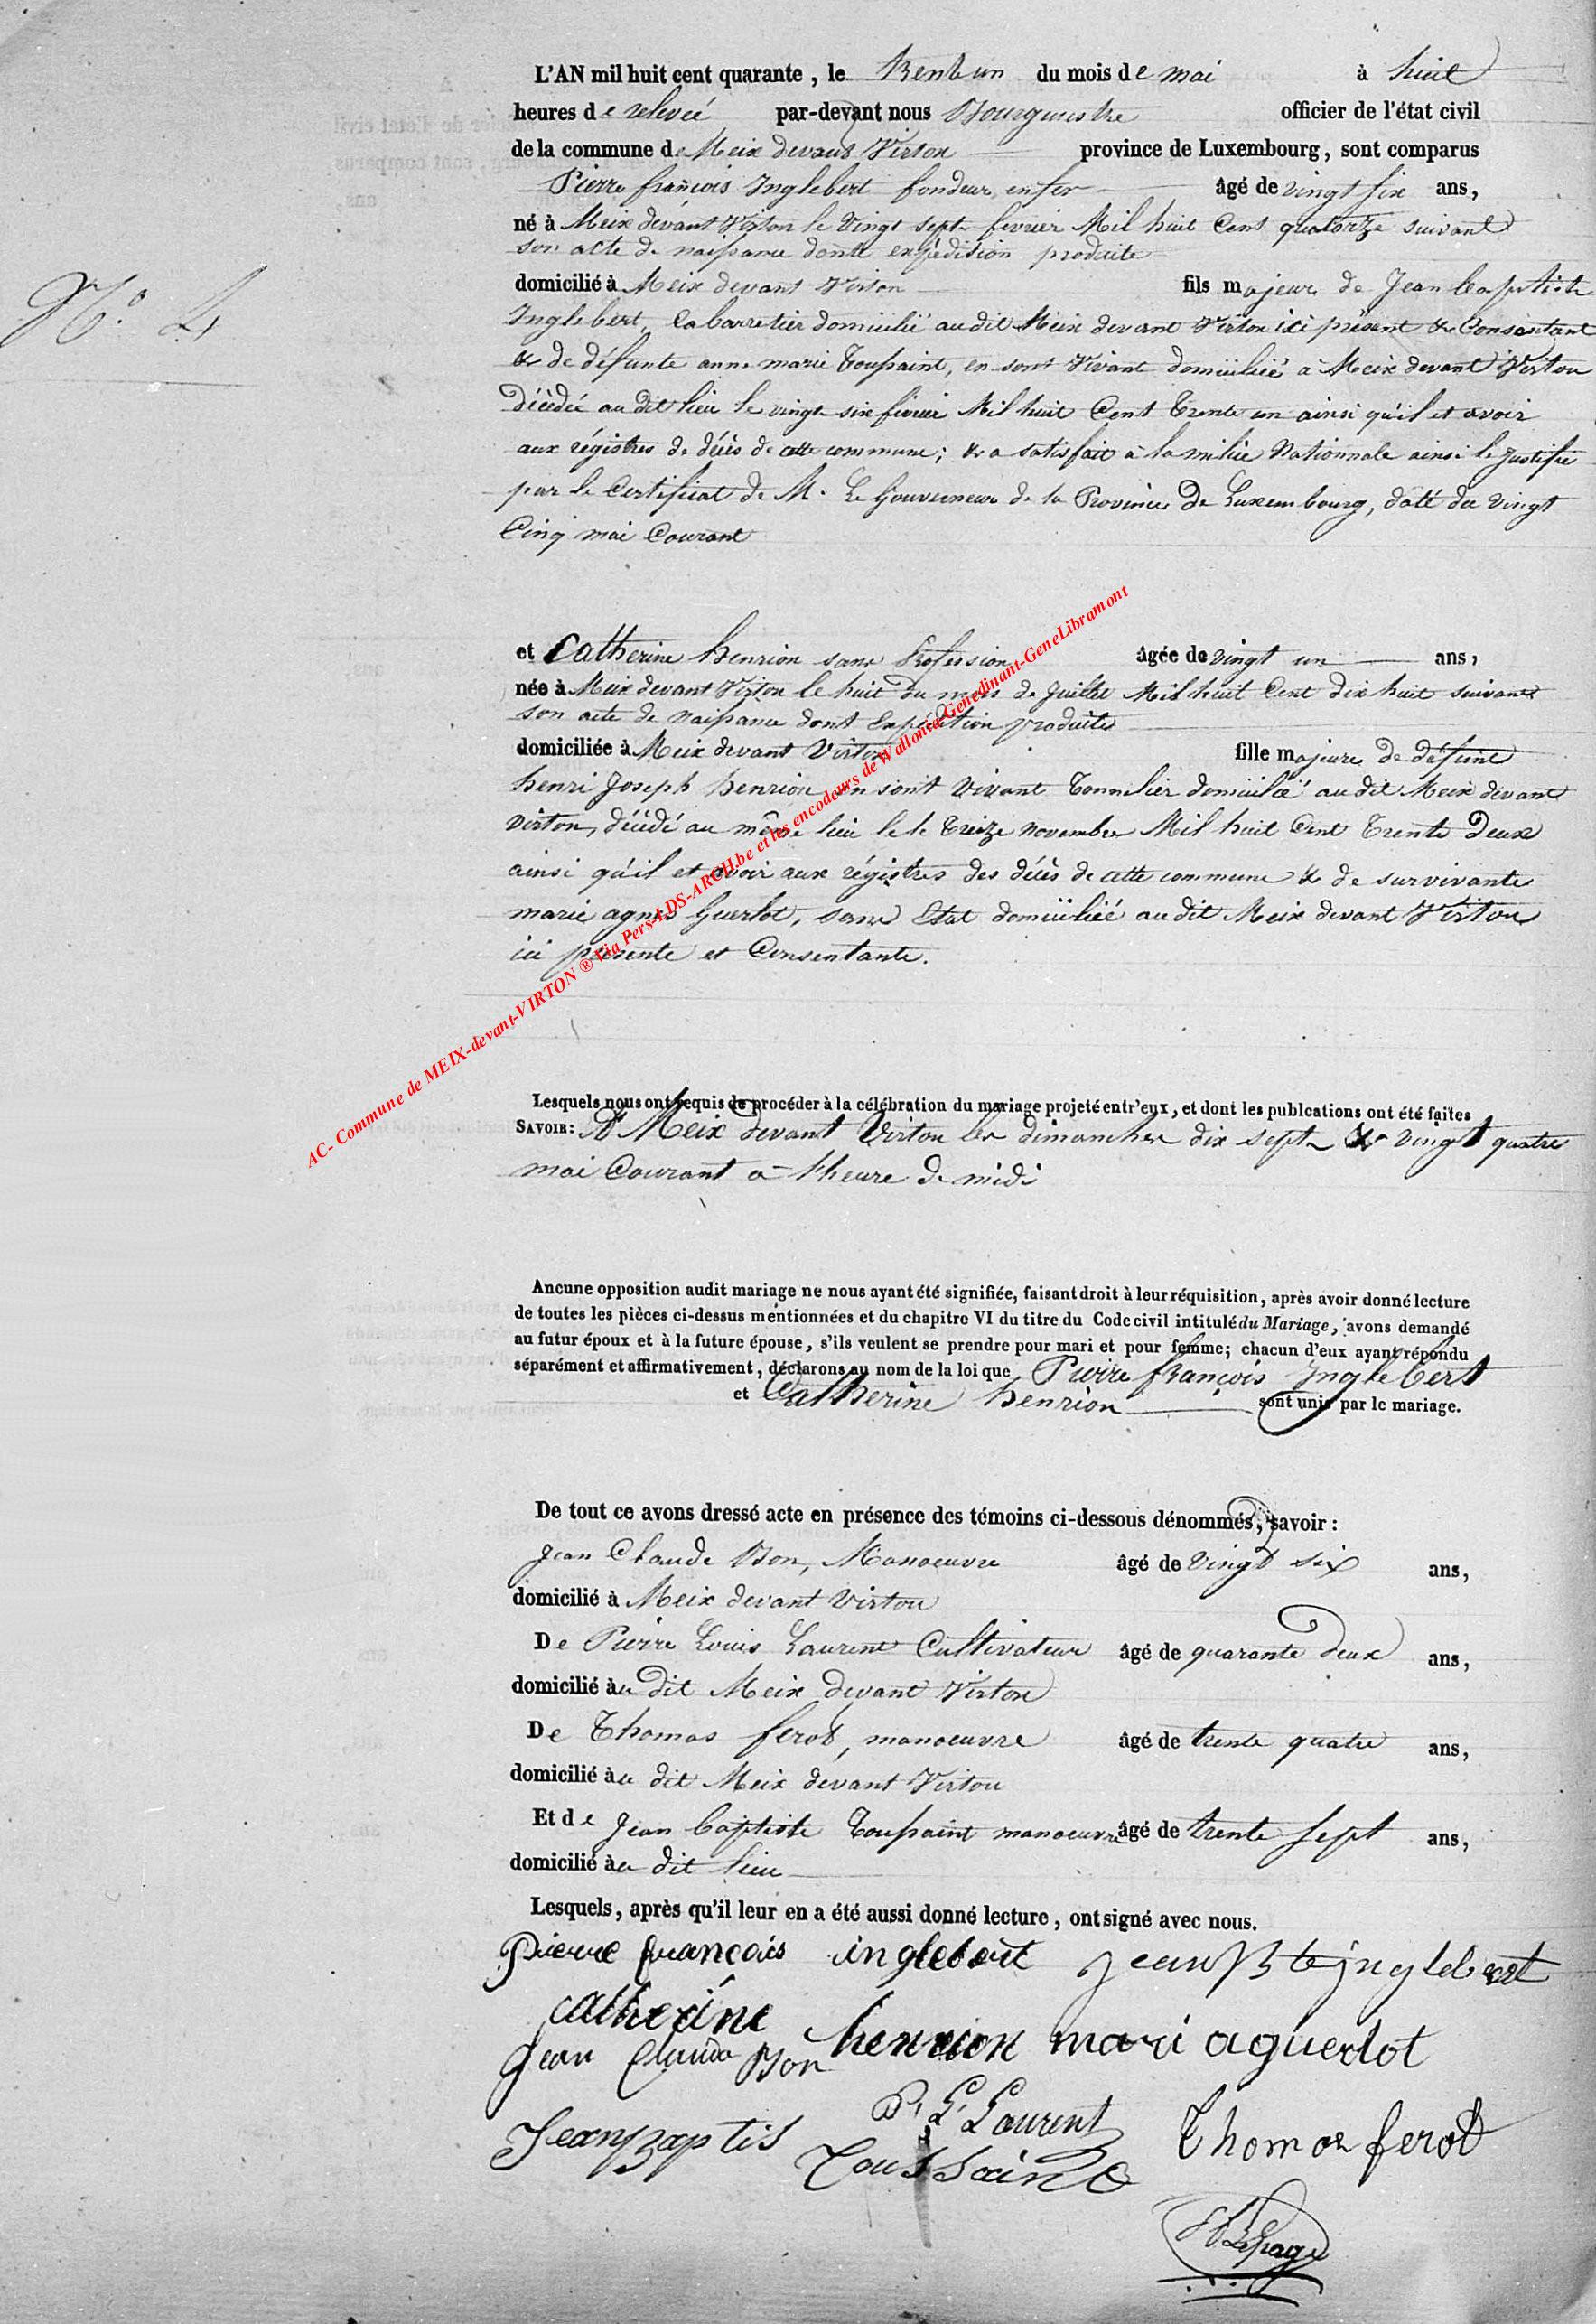 L'AN mil huit cent quarante, le trente un du mois de mai à huit
heures de relevée par-devant nous Bourguestre officier de l'état civil
de la commune de Meix devant Virton province de Luxembourg, sont comparus
Pierre françois Inglebert fondeur en fer âgé de vingt six ans,
né à Meix devant Virton le vingt sept fevrier Mil huit Cent quatorze suivant
son acte de naissance dont expédition produite
domicilié à Meix devant Virton fils majeur de Jean baptiste
N.º 4
Inglebert, Cabarretier domicilié au dit Meix devant Virton ici présent & Consentant
& de défunte anne marie Toussaint, en sont vivant domiciliée à Meix devant Virton
décédée au dit lieu le vingt six fevrier Mil huit Cent Trente un ainsi qu'il et avoir
aux régistres de décès de cette commune; & a satisfait à la milice Nationnale ainsi le justifie
par le Certificat de M. Le Gouverneur de la Province De Luxembourg, daté du vingt
Cinq mai Courant
et Catherine henrion sans Profession âgée de vingt un ans,
née à Meix devant Virton le huit du mois de Juillet Mil huit Cent dix huit suivant
son acte de Naissance dont Expédition produite
domiciliée à Meix devant Virton fille majeure de défunt
henri Joseph henrion en sont vivant Tonnelier domicilié au dit Meix devant
Virton, décédé au même lieu le le Treize novembre Mil huit Cent Trente Deux
ainsi qu'il et avoir aux régistres des décès de cette commune & de survivante
marie agnes Guerlot, sans Etat domiciliée au dit Meix devant Virton
ici présente et Consentante.
AC- Commune de MEIX-devant-VIRTON ® Via Pers-LDS-ARCH.be et les encodeurs de Wallonia-Genedinant-GeneLibramont
Lesquels nous ont requis de procéder à la célébration du mariage projeté entr'eux, et dont les publcations ont été faites
SAVOIR: A Meix devant Virton les dimanches dix sept & vingt quatre
mai Courant à l'heure de midi
Aucune opposition audit mariage ne nous ayant été signifiée, faisant droit à leur réquisition, après avoir donné lecture
de toutes les pièces ci-dessus mentionnées et du chapitre VI du titre du Code civil intitulé du Mariage, avons demandé
au futur époux et à la future épouse, s'ils veulent se prendre pour mari et pour femme; chacun d'eux ayant répondu
séparément et affirmativement, déclarons au nom de la loi que Pierre françois Inglebert
et Catherine henrion sont unis par le mariage.
De tout ce avons dressé acte en présence des témoins ci-dessous dénommés, savoir:
Jean Claude Bon, Manoeuvre âgé de vingt six ans,
domicilié à Meix devant Virton
De Pierre Louis Laurent Cultivateur âgé de quarante deux ans,
domicilié au dit Meix devant Virton
De Thomas ferot, manoeuvre âgé de trente quatre ans,
domicilié au dit Meix devant Virton
Et de Jean baptiste Toussaint manoeuvre âgé de trente sept ans,
domicilié au dit lieu
Lesquels, après qu'il leur en a été aussi donné lecture, ont signé avec nous.
Pierre françois inglebert Jean Bte inglebert
catherine henrion mari aguerlot
Jean Claude Bon
P. L. Laurent Thomas ferot
Jean Baptis Toussaint
Lepage